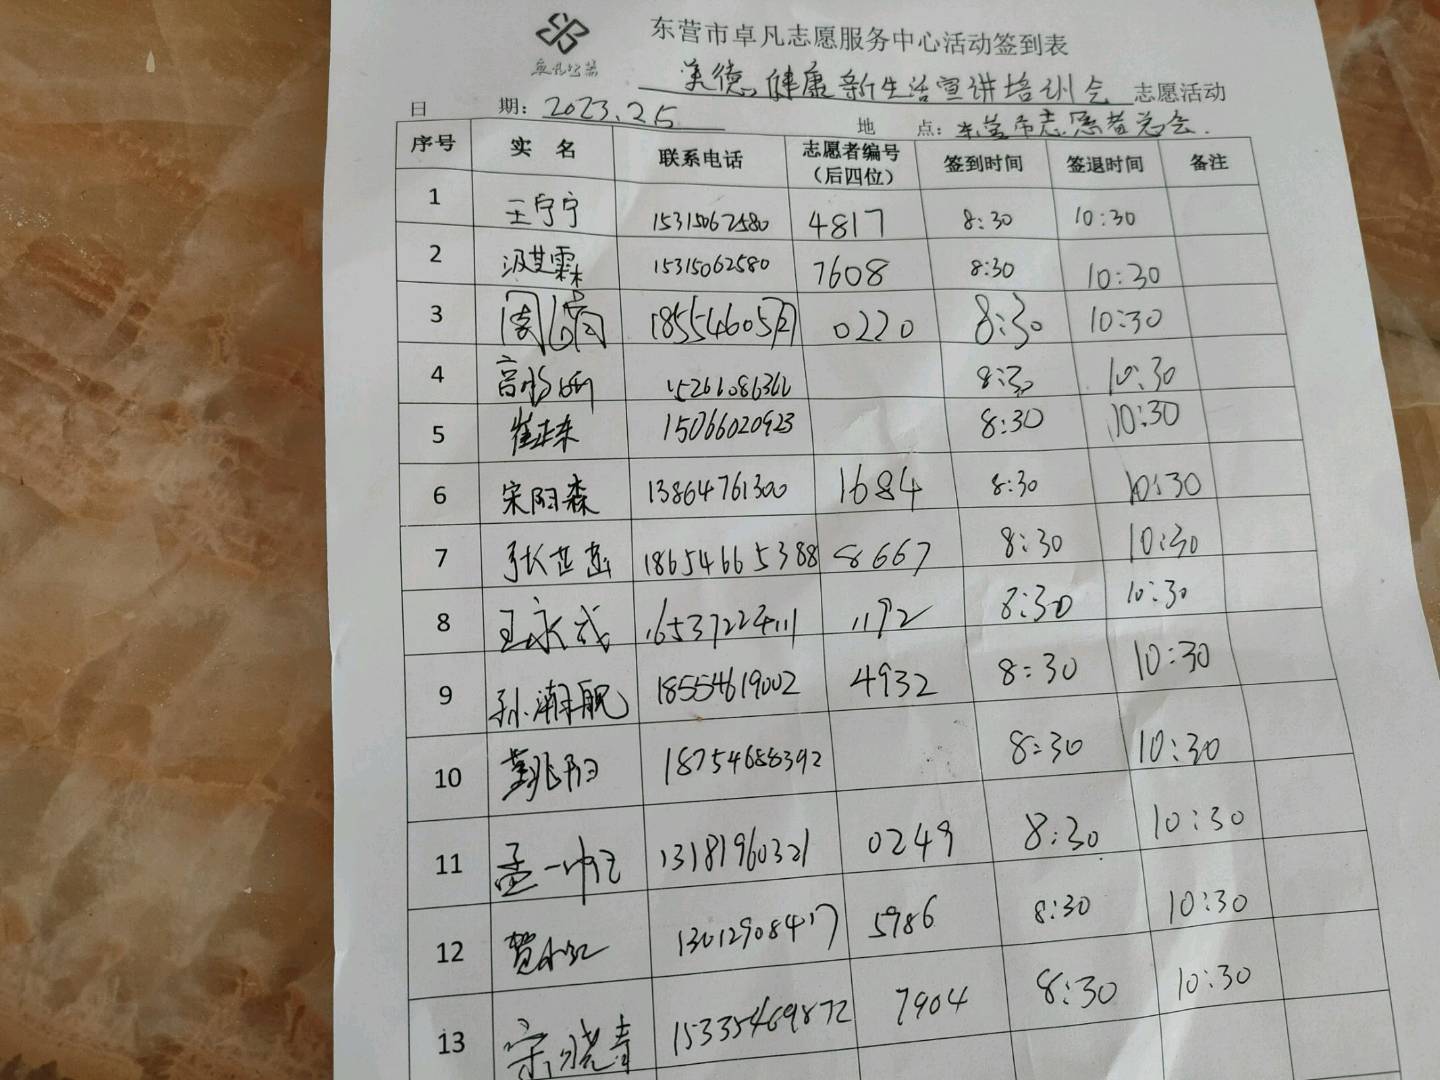 东营市卓凡志愿服务中心活动签到表
美德健康新生活宣讲培训会 志愿活动
日 期: 2023.2.5 地 点: 东营市志愿者总会.
序号 实 名 联系电话 志愿者编号(后四位) 签到时间 签退时间 备注
1 王宁宁 15315062580 4817 8:30 10:30
2 15315062580 7608 8:30 10:30
3 0220 8:30 10:30
4 8:30 10:30
5 崔正来 15066020923 8:30 10:30
6 宋阳森 13864761300 1684 8:30 10:30
7 18654665388 8667 8:30 10:30
8 王永武 1192 8:30 10:30
9 孙瀚舰 18554619002 4932 8:30 10:30
10 18754688392 8:30 10:30
11 13181960321 0249 8:30 10:30
12 13012908417 5986 8:30 10:30
13 宋晓青 15335469872 7904 8:30 10:30